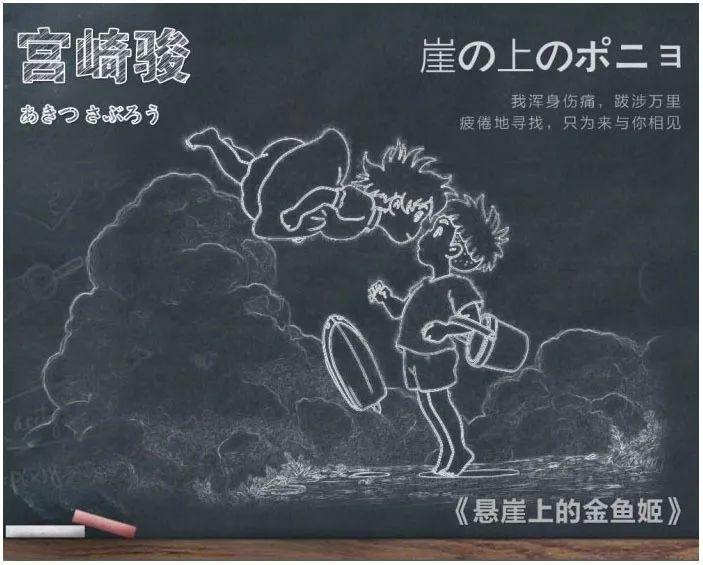 宫崎骏
あきつ さぶろう
崖の上のポニョ
我浑身伤痛，跋涉万里
疲倦地寻找，只为来与你相见
《悬崖上的金鱼姬》